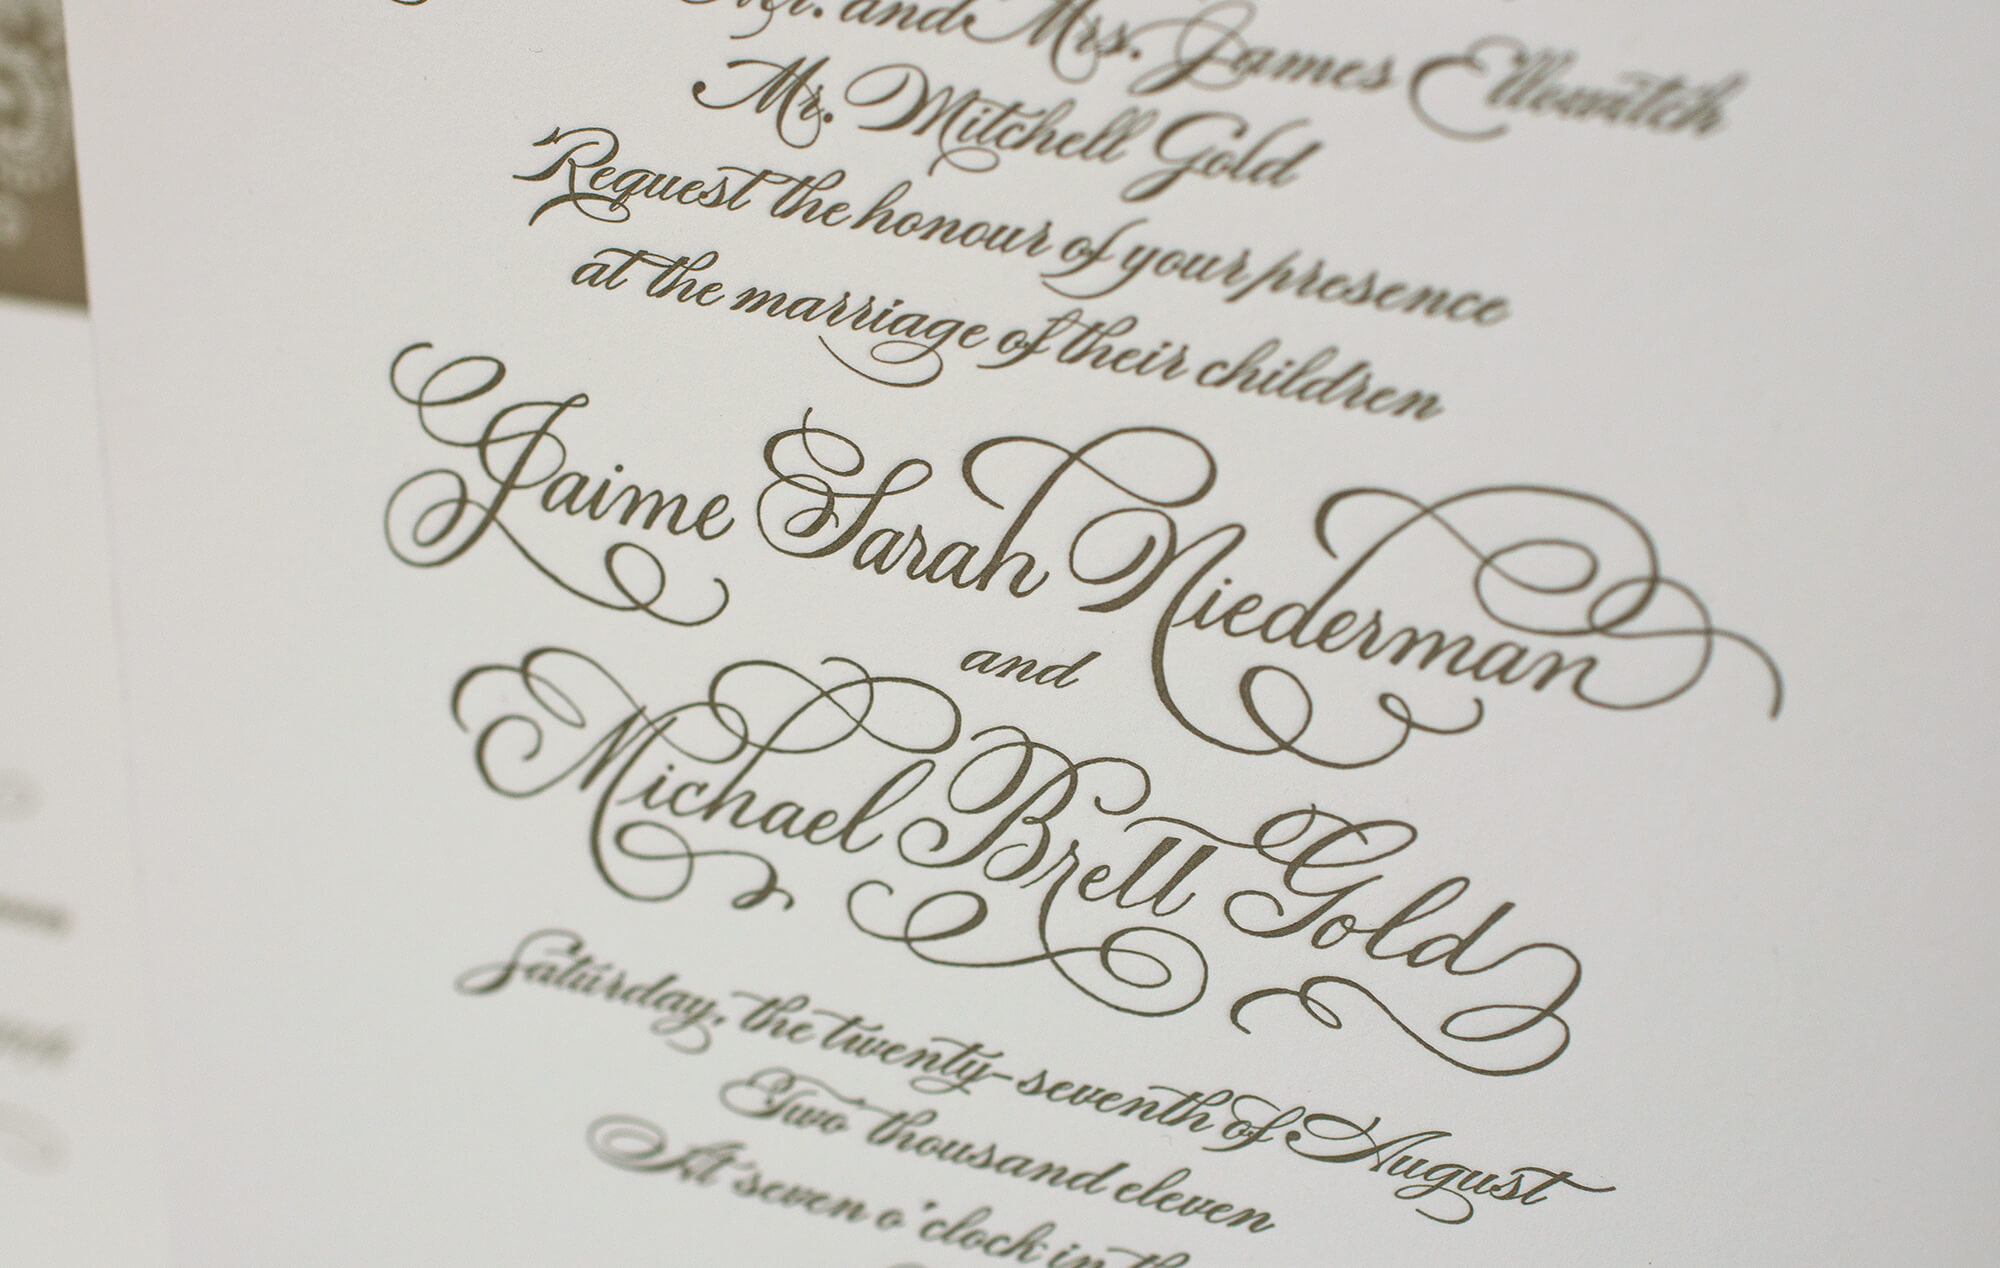 Mr. and Mrs. James Ellowitch
Mr. Mitchell Gold
Request the honour of your presence
at the marriage of their children
Jaime Sarah Niederman
and
Michael Brett Gold
Saturday, the twenty-seventh of August
Two thousand eleven
At seven o'clock in the